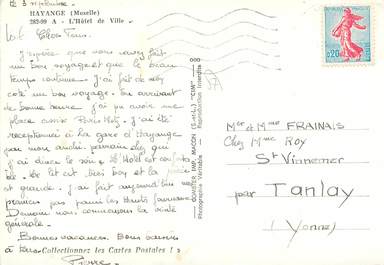 HAYANGE (Moselle)
282-09 A - L'Hôtel de Ville
le 3 septembre
Chers Tous.
J'espère que vous avez fait
un bon voyage et que le beau
temps continue. J'ai fait de mon
coté un bon voyage. en arrivant
de bonne heure j'ai pu avoir une
place assise Paris Metz. J'ai été
réceptionné à la gare d'Hayange
par mon
j'ai diner le soir. L'Hôtel est
lit est très bon et la pièce
est grande. J'ai fait aujourd'hui mes
premiers pas parmi les Hauts fourneaux
Demain nous commençons la visite
générale.
Bonnes vacances. Bons baisers
à tous.
« Collectionnez les Cartes Postales ! »
Pierre
COMBIER IMP. MACON (S.-et-L.) "CIM"
Photographie Véritable - Reproduction Interdite
0,20
Mr et Mme FRAINAIS
Chez Mme Roy
St Vinnemer
par Tanlay
(Yonne)